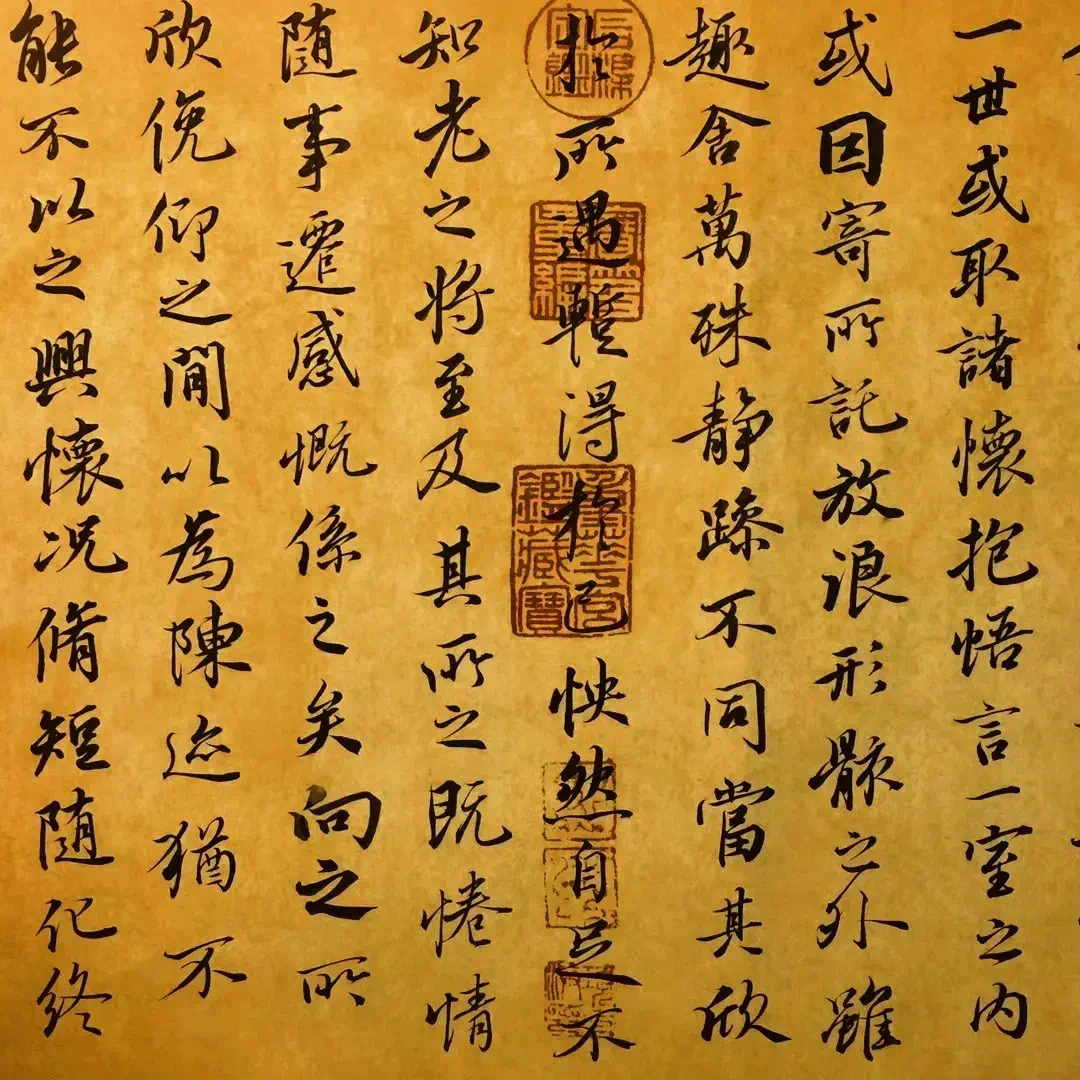 一世或取諸懷抱悟言一室之内
或因寄所託放浪形骸之外雖
趣舍萬殊静躁不同當其欣
於所遇蹔得於己怏然自足不
知老之将至及其所之既惓情
随事遷感慨係之矣向之所
欣俛仰之閒以為陳迹猶不
能不以之興懷况脩短随化終
石渠定鑑
寶笈重編
重華宮鑑藏寶